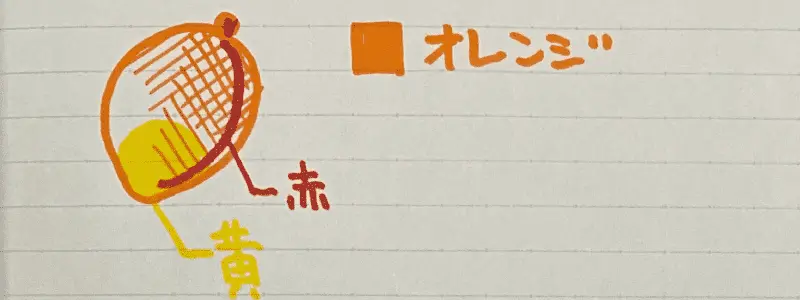 オレンジ
赤
黄